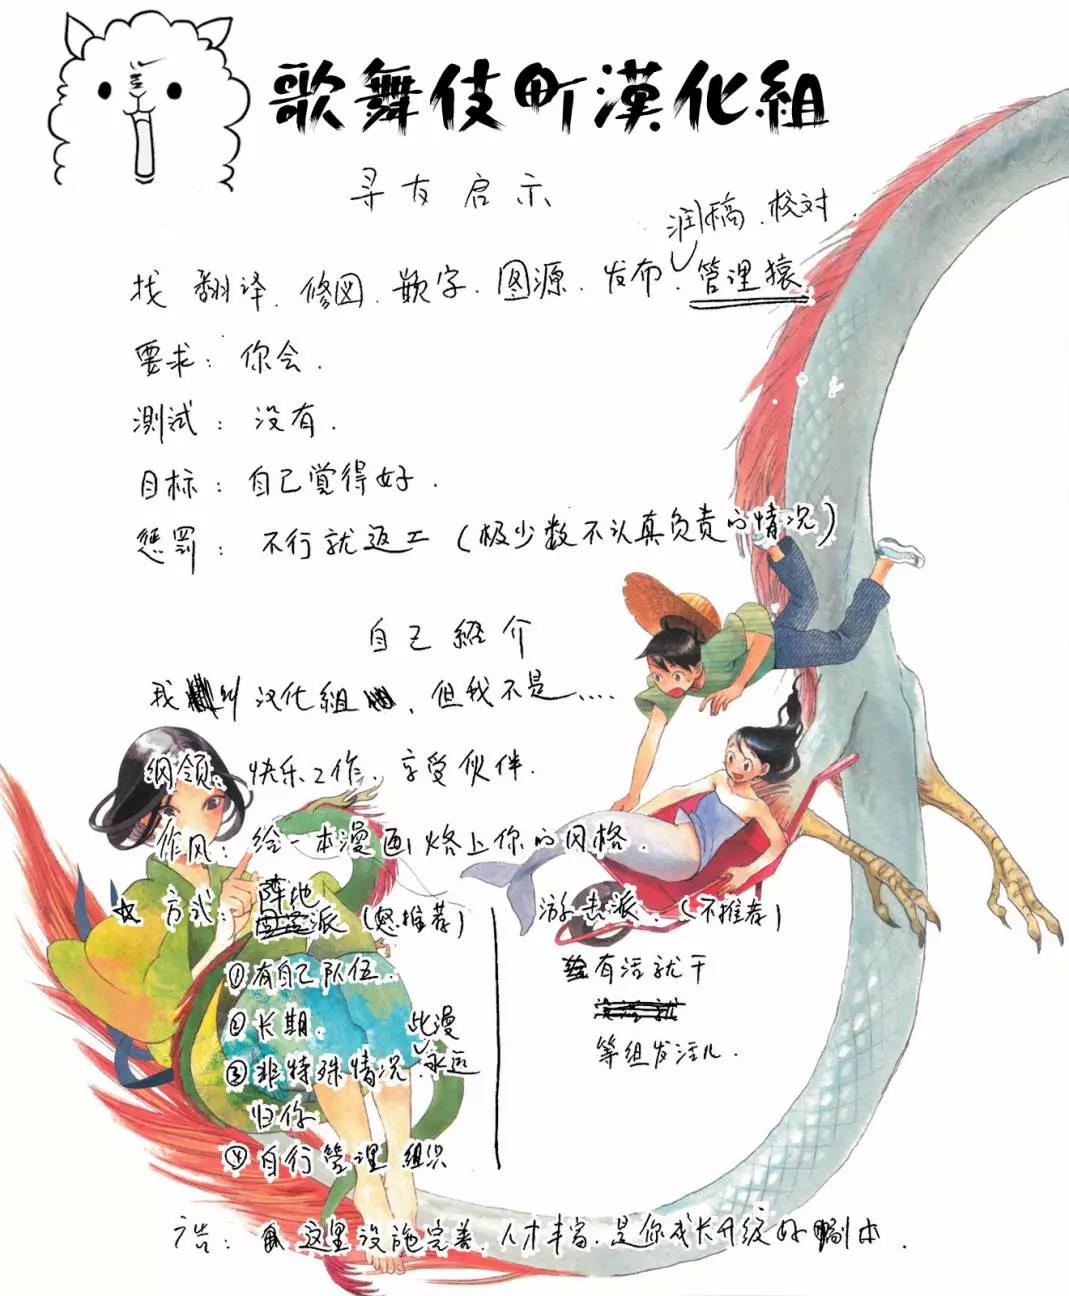 歌舞伎町漢化組
寻友启示
润稿、校对
找 翻译、修图、嵌字、图源、发布、管理猿
要求：你会.
测试：没有.
目标：自己觉得好.
惩罚：不行就返工（极少数不认真负责的情况）
自己绍介
我 叫汉化组，但我不是....
纲领：快乐工作、享受伙伴.
作风：给一本漫画烙上你的风格.
☆ 方式：阵地派（愿推荐）
①有自己队伍.
②长期.
③非特殊情况、此漫永远
归你
④自行管理组织
游击派、（不推荐）
有活就干
等组发活儿.
广告：这里设施完善、人才丰富、是你成长升级好副本.